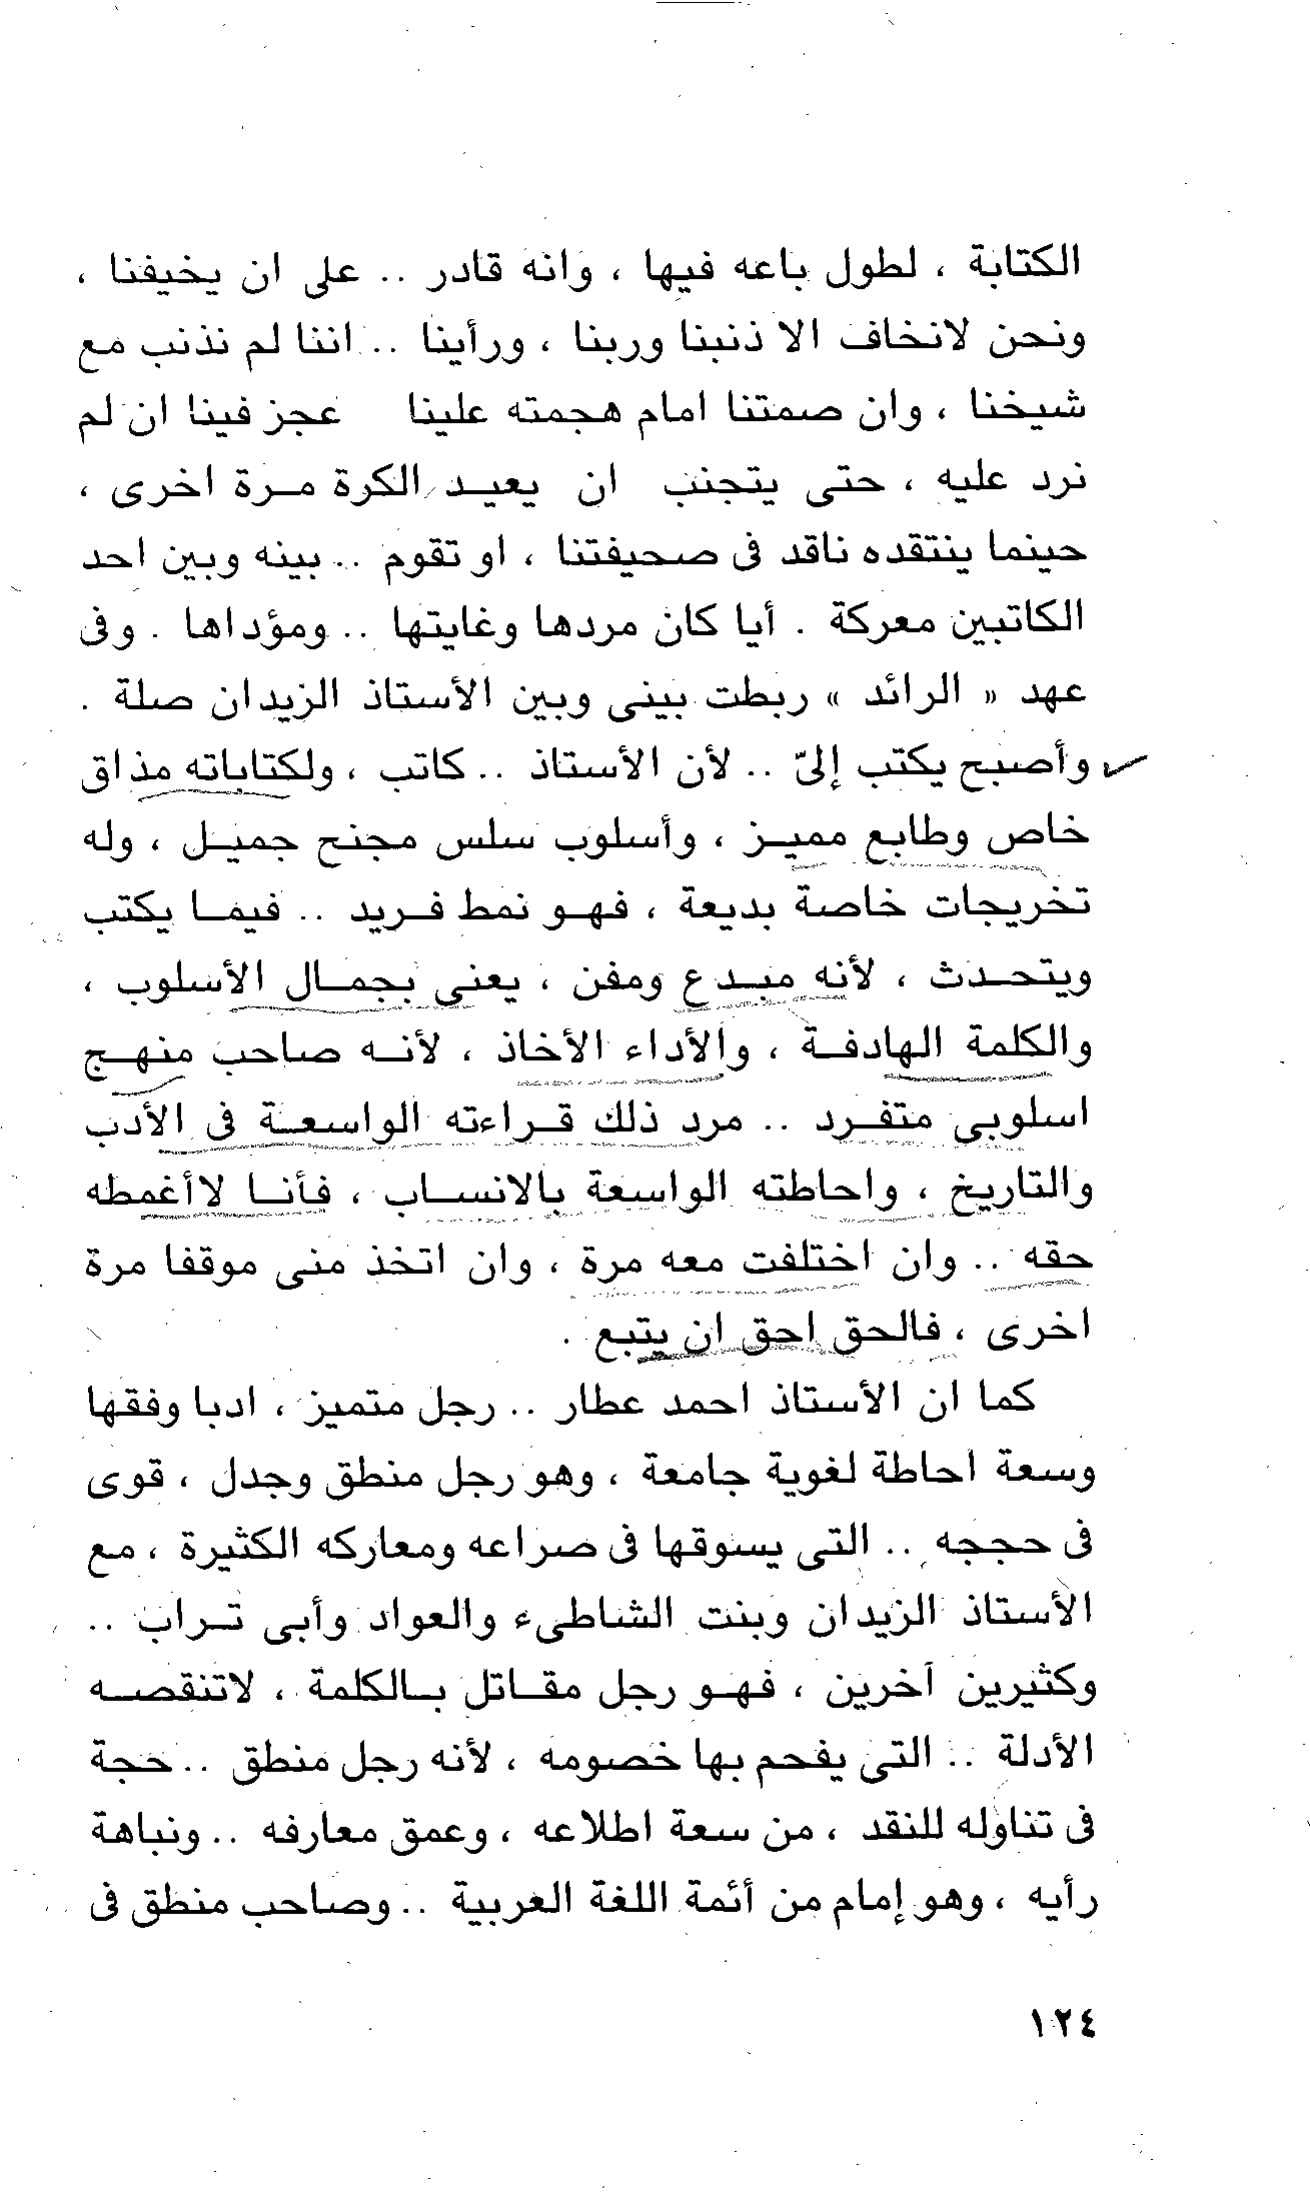 الكتابة ، لطول باعه فيها ، وانه قادر .. على ان يخيفنا ،
ونحن لانخاف الا ذنبنا وربنا ، ورأينا .. اننا لم نذنب مع
شيخنا ، وان صمتنا امام هجمته علينا عجز فينا ان لم
نرد عليه ، حتى يتجنب ان يعيد الكرة مرة اخرى ،
حينما ينتقده ناقد فى صحيفتنا ، او تقوم .. بينه وبين احد
الكاتبين معركة . أيا كان مردها وغايتها .. ومؤداها . وفى
عهد « الرائد » ربطت بينى وبين الأستاذ الزيدان صلة .
وأصبح يكتب إلىّ .. لأن الأستاذ .. كاتب ، ولكتاباته مذاق
خاص وطابع مميز ، وأسلوب سلس مجنح جميل ، وله
تخريجات خاصة بديعة ، فهو نمط فريد .. فيما يكتب
ويتحدث ، لأنه مبدع ومفن ، يعنى بجمال الأسلوب ،
والكلمة الهادفة ، والأداء الأخاذ ، لأنه صاحب منهج
اسلوبى متفرد .. مرد ذلك قراءته الواسعة فى الأدب
والتاريخ ، واحاطته الواسعة بالانساب ، فأنا لاأغمطه
حقه .. وان اختلفت معه مرة ، وان اتخذ منى موقفا مرة
اخرى ، فالحق احق ان يتبع .
كما ان الأستاذ احمد عطار .. رجل متميز ، ادبا وفقها
وسعة احاطة لغوية جامعة ، وهو رجل منطق وجدل ، قوى
فى حججه .. التى يسوقها فى صراعه ومعاركه الكثيرة ، مع
الأستاذ الزيدان وبنت الشاطىء والعواد وأبى تراب ..
وكثيرين آخرين ، فهو رجل مقاتل بالكلمة ، لاتنقصه
الأدلة .. التى يفحم بها خصومه ، لأنه رجل منطق .. حجة
فى تناوله للنقد ، من سعة اطلاعه ، وعمق معارفه .. ونباهة
رأيه ، وهو إمام من أئمة اللغة العربية .. وصاحب منطق فى
١٢٤